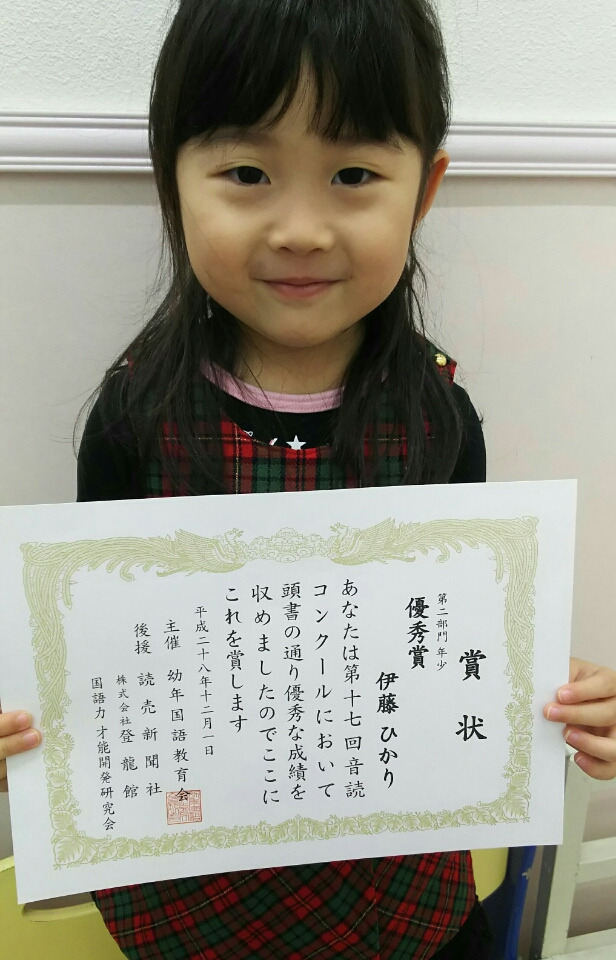 賞状
第二部門 年少
優秀賞
伊藤 ひかり
あなたは第十七回音読
コンクールにおいて
頭書の通り優秀な成績を
収めましたのでここに
これを賞します
平成二十八年十二月一日
主催 幼年国語教育会
後援 読売新聞社
株式会社 登龍館
国語力才能開発研究会